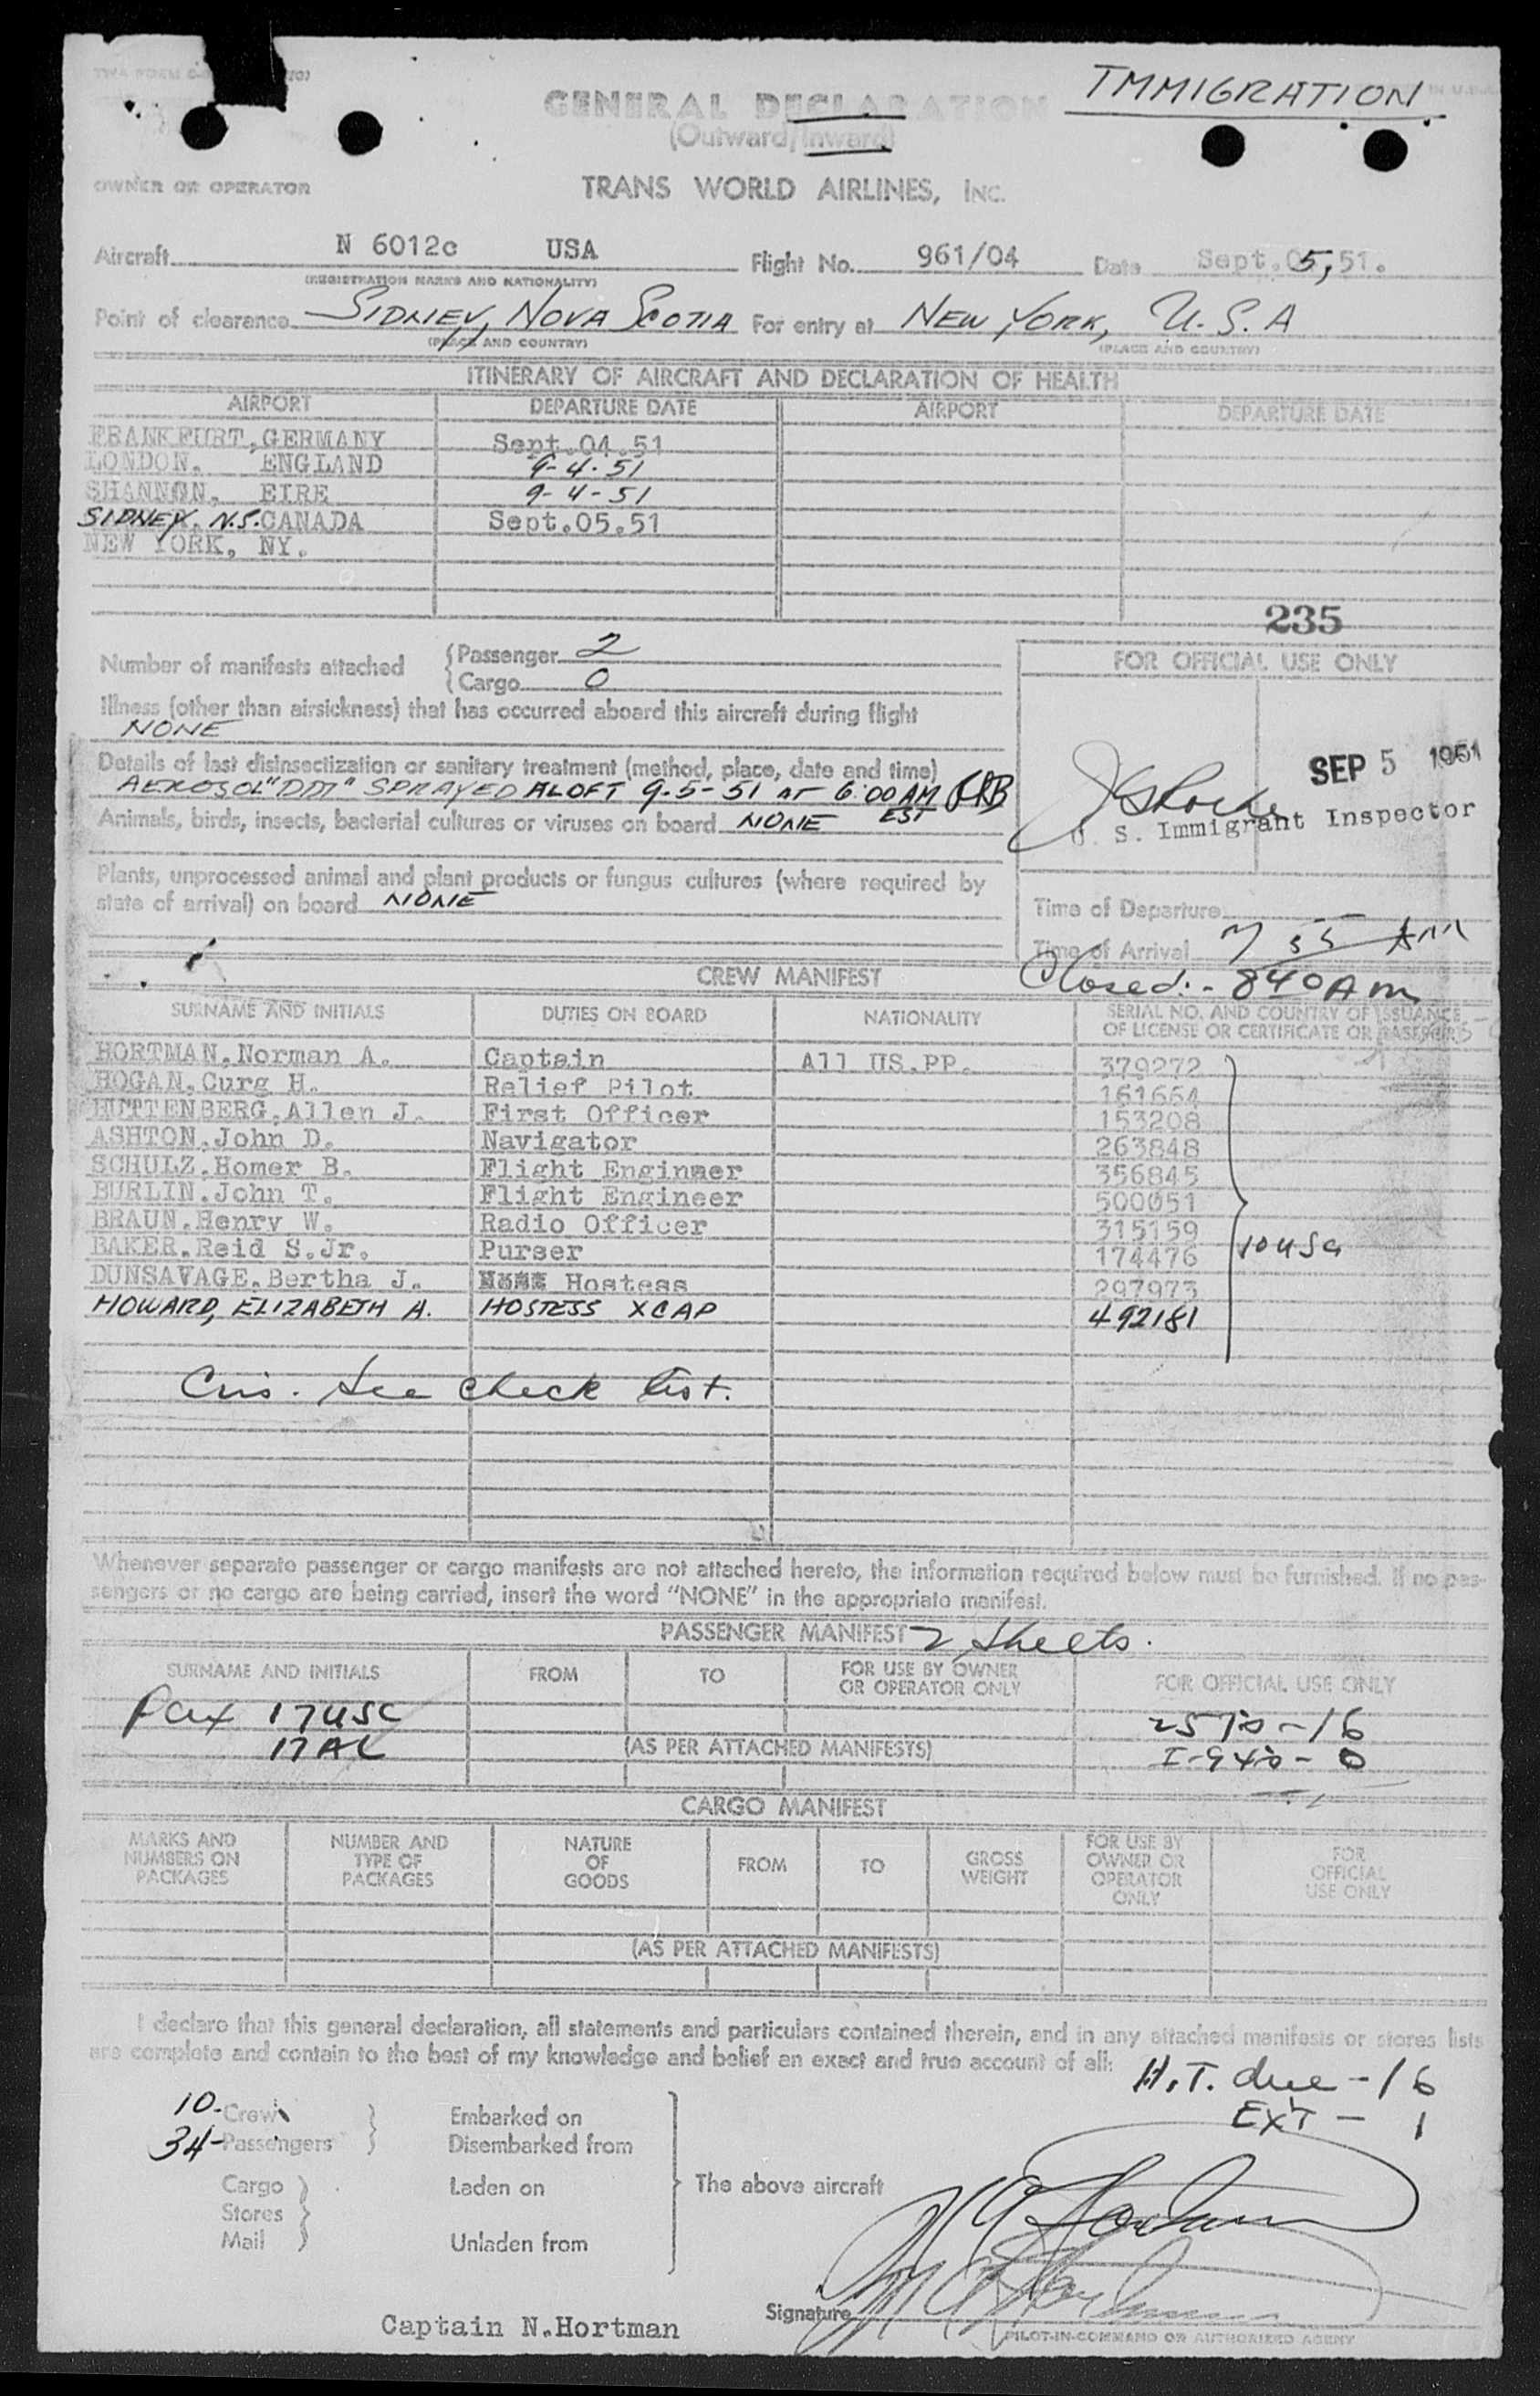 TWA FORM
IMMIGRATION
GENERAL DECLARATION
(Outward/Inward)
OWNER OR OPERATOR TRANS WORLD AIRLINES, INC.
Aircraft N 6012c USA Flight No. 961/04 Date Sept.05,51.
(REGISTRATION MARKS AND NATIONALITY)
Point of clearance SIDNEY, NOVA SCOTIA For entry at NEW YORK, U.S.A
(PLACE AND COUNTRY) (PLACE AND COUNTRY)
ITINERARY OF AIRCRAFT AND DECLARATION OF HEALTH
AIRPORT DEPARTURE DATE AIRPORT DEPARTURE DATE
FRANKFURT,GERMANY Sept.04.51
LONDON, ENGLAND 9-4-51
SHANNON, EIRE 9-4-51
SIDNEY, N.S. CANADA Sept.05.51
NEW YORK, NY.
235
Number of manifests attached Passenger 2
Cargo 0
FOR OFFICIAL USE ONLY
Illness (other than airsickness) that has occurred aboard this aircraft during flight
NONE
SEP 5 1951
Details of last disinsectization or sanitary treatment (method, place, date and time)
AEROSOL "DDT" SPRAYED ALOFT 9-5-51 AT 6:00 AM EST
U. S. Immigrant Inspector
Animals, birds, insects, bacterial cultures or viruses on board NONE
Plants, unprocessed animal and plant products or fungus cultures (where required by
state of arrival) on board NONE
Time of Departure
Time of Arrival 7 55 AM
Closed:- 840 Am
CREW MANIFEST
SURNAME AND INITIALS DUTIES ON BOARD NATIONALITY SERIAL NO. AND COUNTRY OF ISSUANCE
OF LICENSE OR CERTIFICATE OR PASSPORT
HORTMAN,Norman A. Captain All US.PP. 379272
HOGAN,Curg H. Relief Pilot 161664
HUTTENBERG,Allen J. First Officer 153208
ASHTON,John D. Navigator 263848
SCHULZ,Homer B. Flight Engineer 356845
BURLIN,John T. Flight Engineer 500051
BRAUN,Henry W. Radio Officer 315159
BAKER,Reid S.Jr. Purser 174476 10 USC
DUNSAVAGE,Bertha J. Hostess 297973
HOWARD, ELIZABETH A. HOSTESS XCAP 492181
Cris. See check list.
Whenever separate passenger or cargo manifests are not attached hereto, the information required below must be furnished. If no pas-
sengers or no cargo are being carried, insert the word "NONE" in the appropriate manifest.
PASSENGER MANIFEST 2 sheets.
SURNAME AND INITIALS FROM TO FOR USE BY OWNER
OR OPERATOR ONLY FOR OFFICIAL USE ONLY
Pax 17 USC 257's - 16
17 AL (AS PER ATTACHED MANIFESTS) I-94's - 0
CARGO MANIFEST
MARKS AND
NUMBERS ON
PACKAGES NUMBER AND
TYPE OF
PACKAGES NATURE
OF
GOODS FROM TO GROSS
WEIGHT FOR USE BY
OWNER OR
OPERATOR
ONLY FOR
OFFICIAL
USE ONLY
(AS PER ATTACHED MANIFESTS)
I declare that this general declaration, all statements and particulars contained therein, and in any attached manifests or stores lists
are complete and contain to the best of my knowledge and belief an exact and true account of all:
H.T. due - 16
EXT - 1
10-Crew Embarked on
34-Passengers Disembarked from
Cargo Laden on The above aircraft
Stores
Mail Unladen from
Captain N.Hortman Signature
PILOT-IN-COMMAND OR AUTHORIZED AGENT